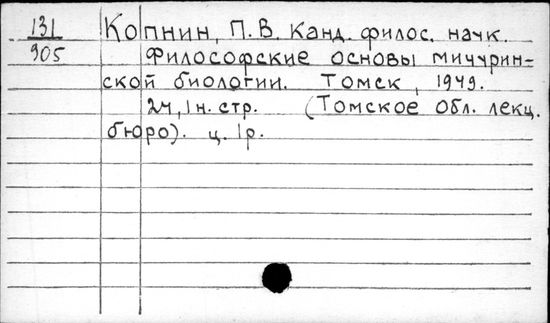 131 Копнин, П.В. Канд. филос. наук.
905 Философские основы мичурин-
ской биологии. Томск, 1949.
24, 1 н. стр. (Томское обл. лекц.
бюро). ц. 1р.